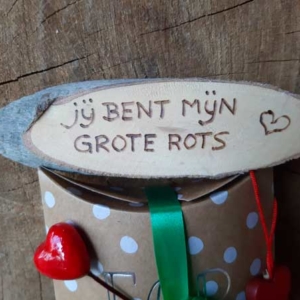 jÿ BENT MÿN
GROTE ROTS